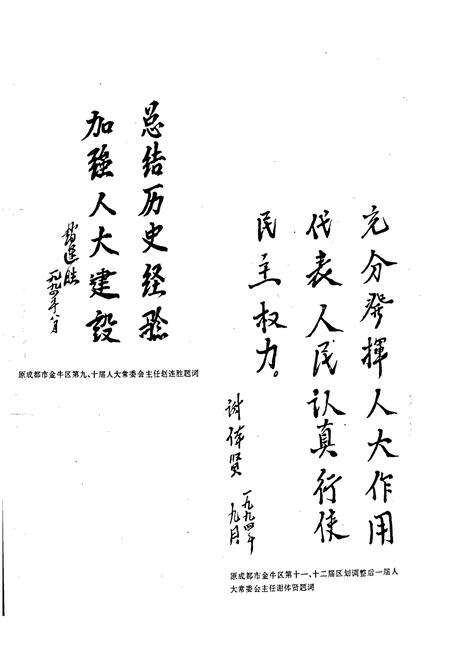 总结历史经验
加强人大建设
赵连胜
一九九四年八月
原成都市金牛区第九、十届人大常委会主任赵连胜题词
充分發揮人大作用
代表人民认真行使
民主权力。
谢体贤
一九九四年
九月
原成都市金牛区第十一、十二届区划调整后一届人
大常委会主任谢体贤题词